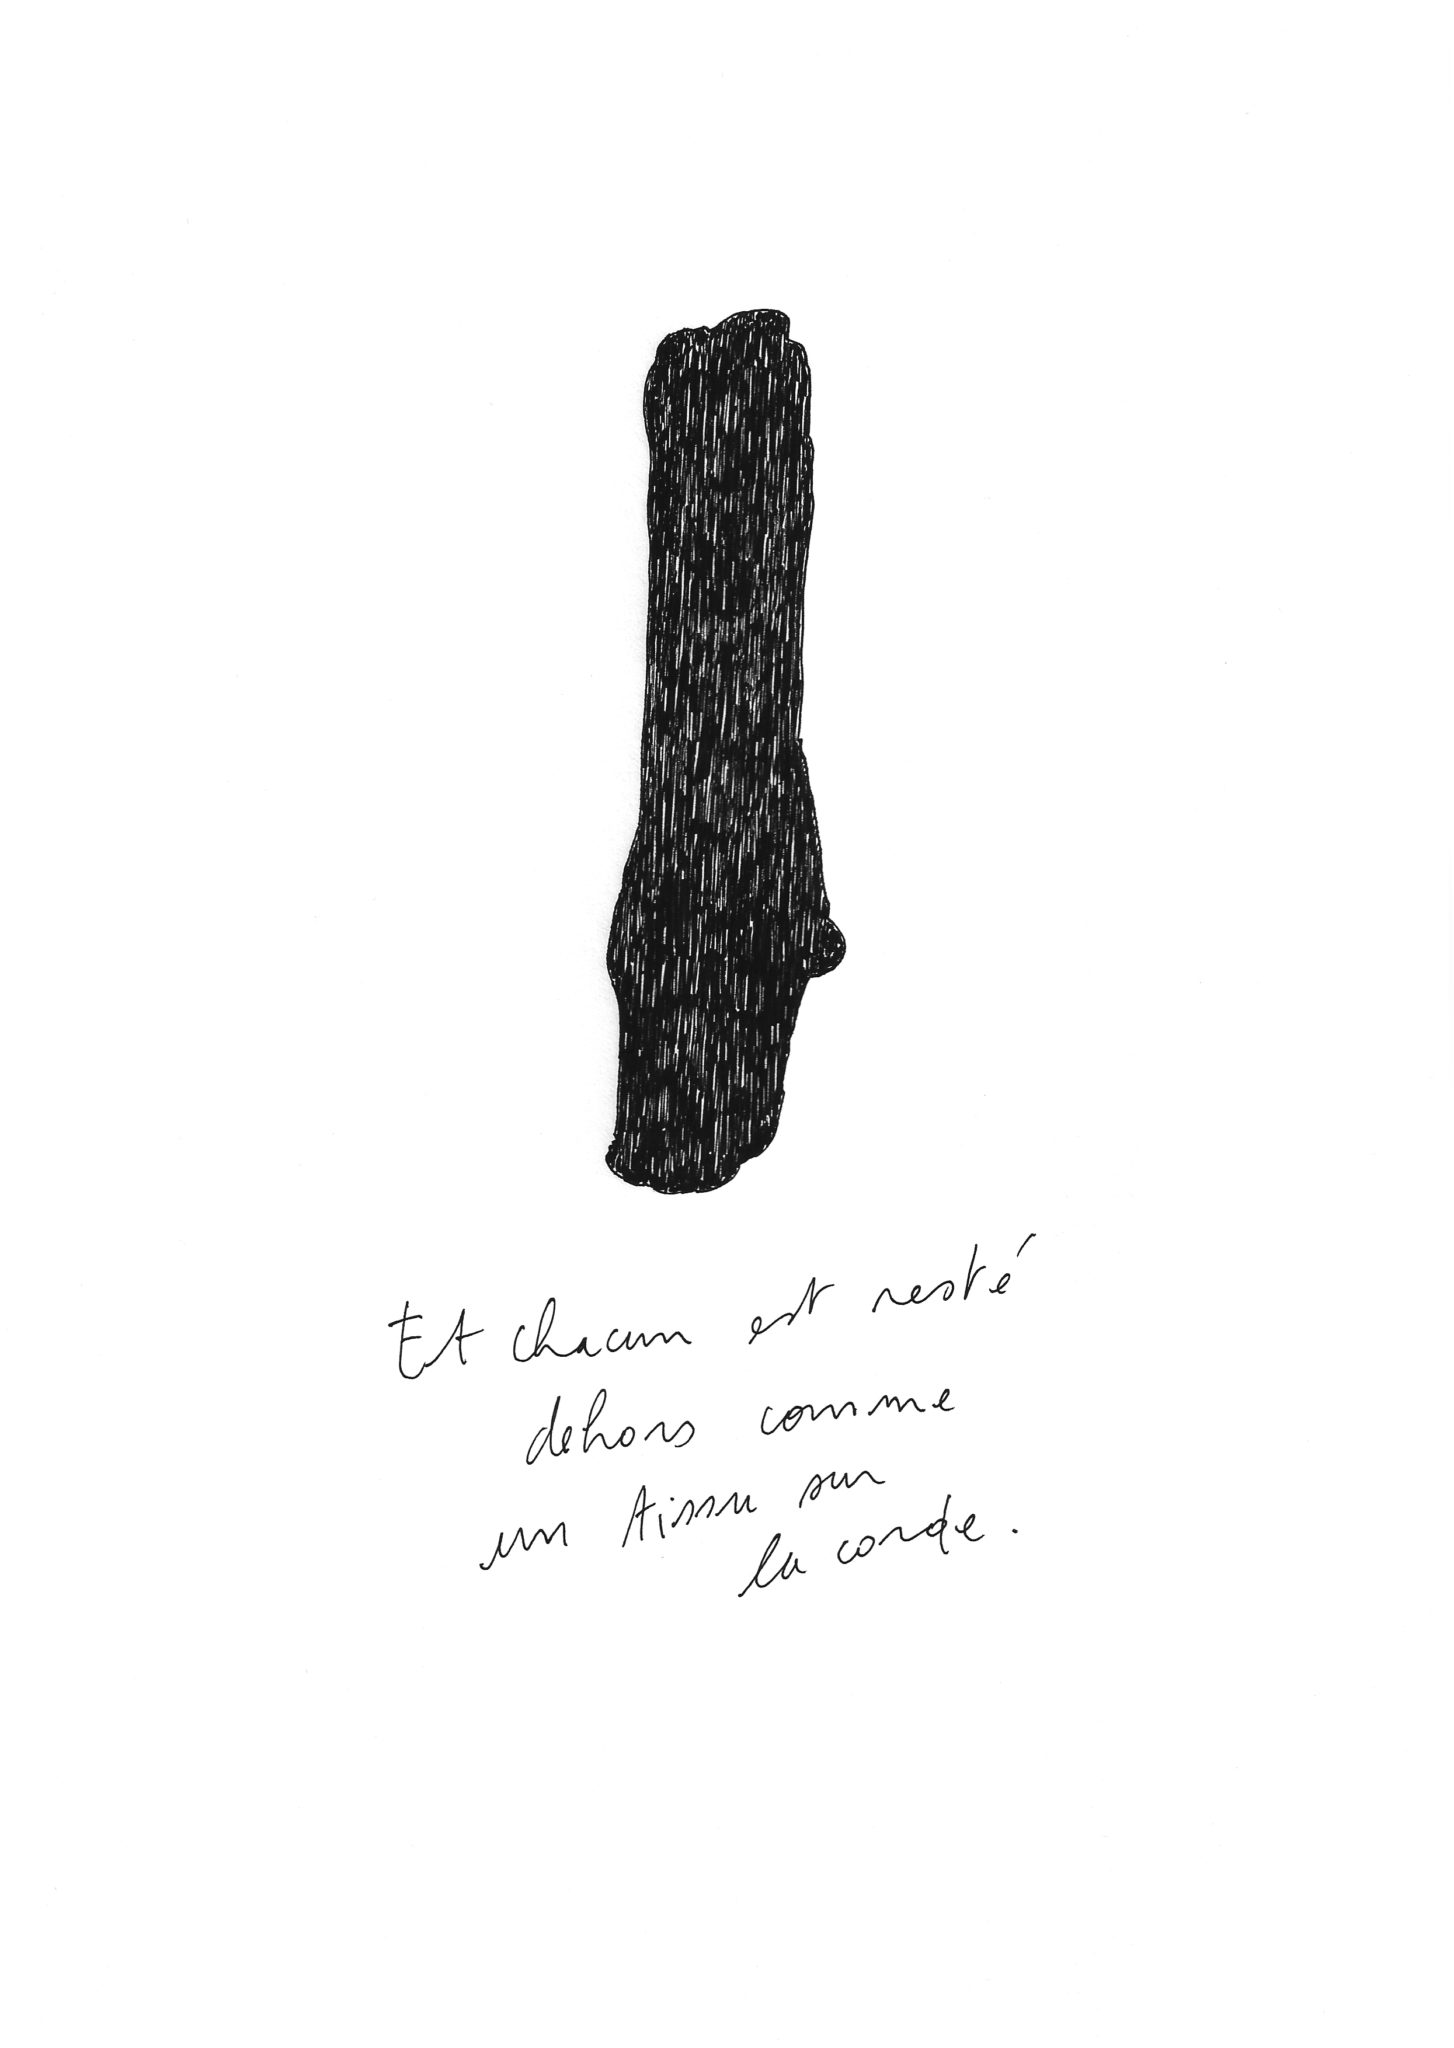 Et chacun est resté
dehors comme
un tissu sur
la corde.